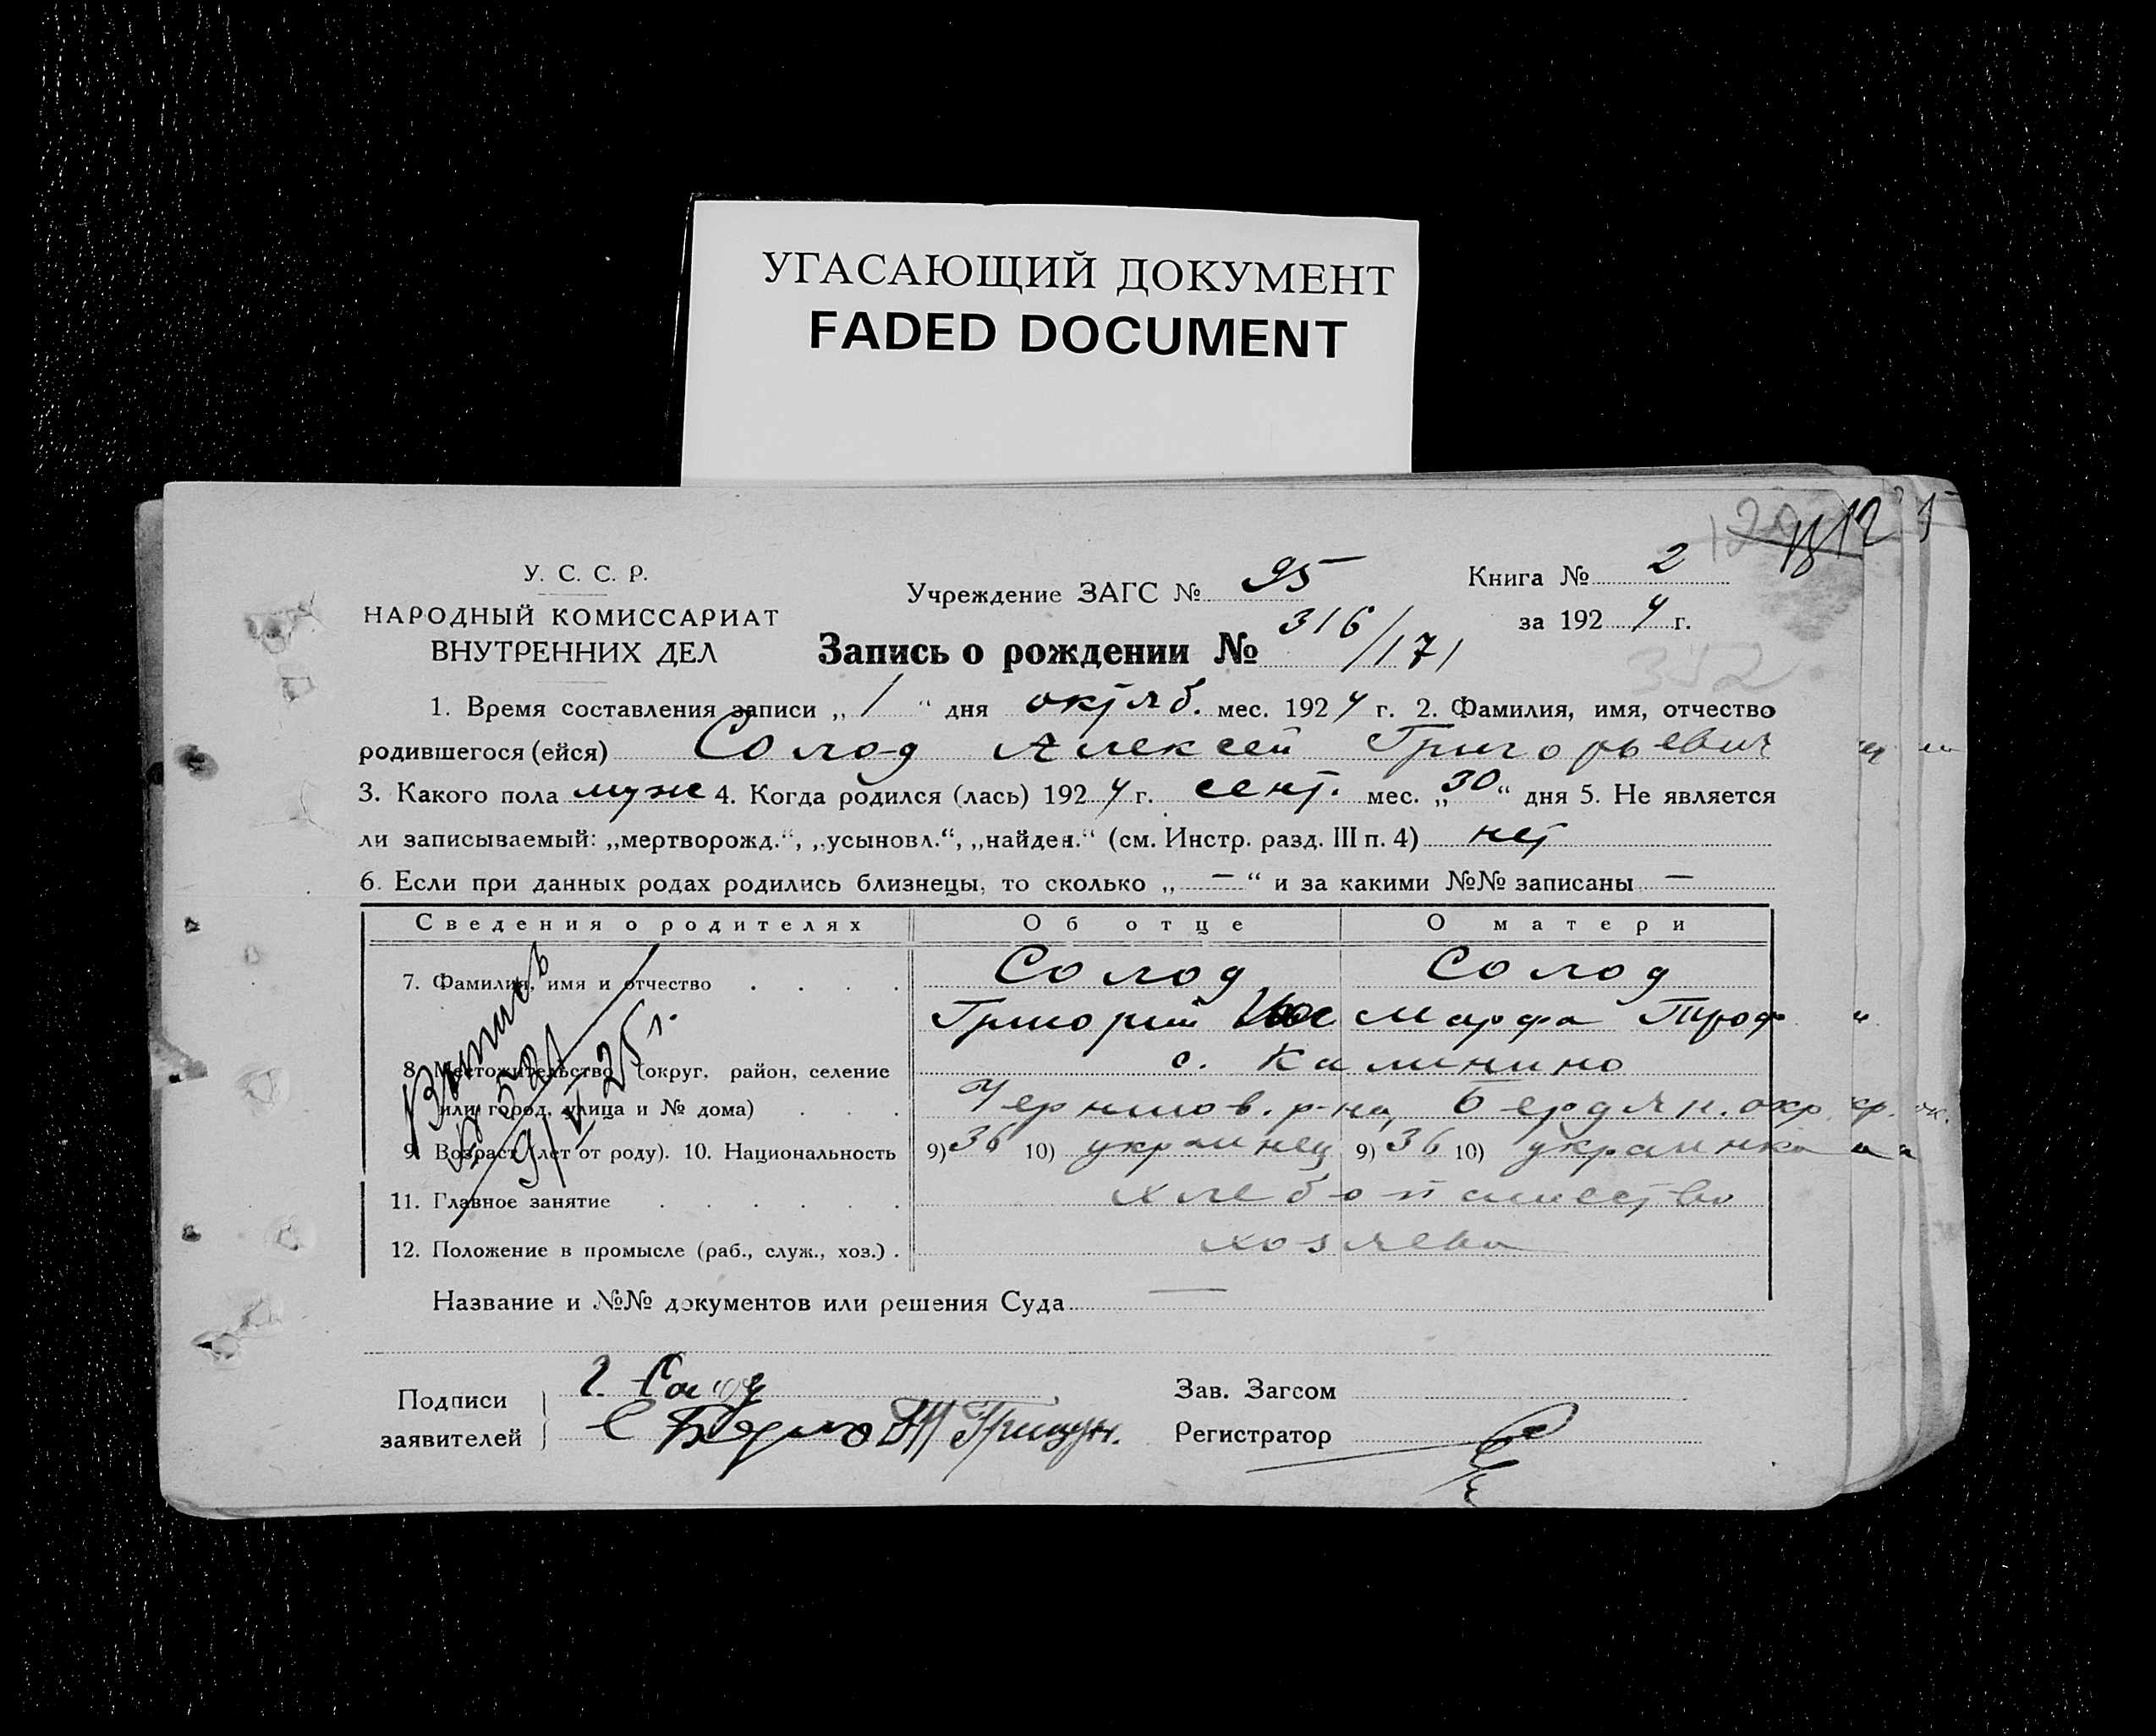 УГАСАЮЩИЙ ДОКУМЕНТ
FADED DOCUMENT
У. С. С. Р.
НАРОДНЫЙ КОМИССАРИАТ
ВНУТРЕННИХ ДЕЛ
Учреждение ЗАГС № 95
Книга № 2
за 1924 г.
Запись о рождении № 316/171
352
1. Время составления записи „ 1 “ дня октяб. мес. 1924 г. 2. Фамилия, имя, отчество
родившегося (ейся) Солод Алексей Григорьевич
3. Какого пола муж 4. Когда родился (лась) 1924 г. сент. мес. „30“ дня 5. Не является
ли записываемый: „мертворожд.“, „усыновл.“, „найден.“ (см. Инстр. разд. III п. 4) нет
6. Если при данных родах родились близнецы, то сколько „ — “ и за какими №№ записаны —
Сведения о родителях Об отце О матери
7. Фамилия, имя и отчество Солод Солод
Григорий Марфа Троф
8. Местожительство (округ, район, селение с. Калинино
или город, улица и № дома) Черниговв. р-на, Бердян. окр.
9. Возраст (лет от роду). 10. Национальность 9) 36 10) украинец 9) 36 10) украинка
11. Главное занятие хлебопашество
12. Положение в промысле (раб., служ., хоз.) хозяева
Название и №№ документов или решения Суда —
Подписи заявителей
Г. Солод
Зав. Загсом
Регистратор